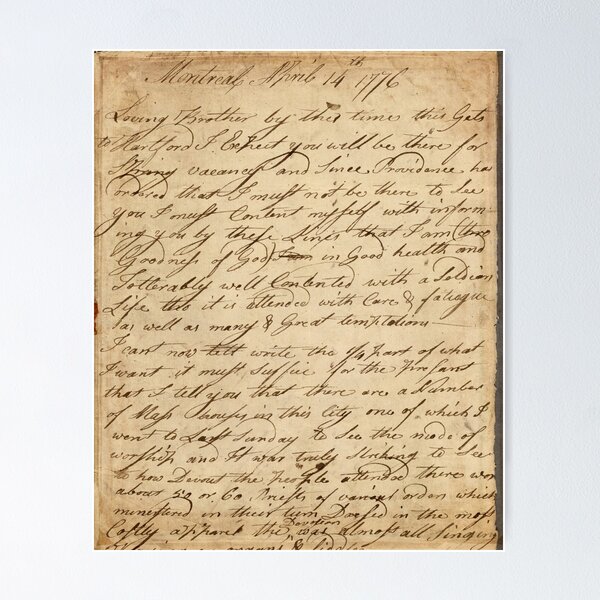 Montreal April 14th 1776
Loving Brother by the time this Gets
to Hartford I Expect you will be there for
Spring vacancy and Since Providence has
ordered that I must not be there to see
you I must Content myself with inform-
ing you by these Lines that I am (thro
Goodness of God) I am in Good health and
Tollerably well Contented with a Soldiers
Life tho it is attended with Care & fatiegue
as well as many & Great temptations—
I cant now tell write the part of what
I want it must suffice for the present
that I tell you that there are a Number
of Mass houses in this City one of which I
went to Last Sunday to See the mode of
worship and It was truly Striking to see
to how Devout the people attended there were
about 50 or 60 Priests of various orders which
ministered in their turn Dressed in the most
Costly apparel the Devotion was almost all Singing
organs & fiddles